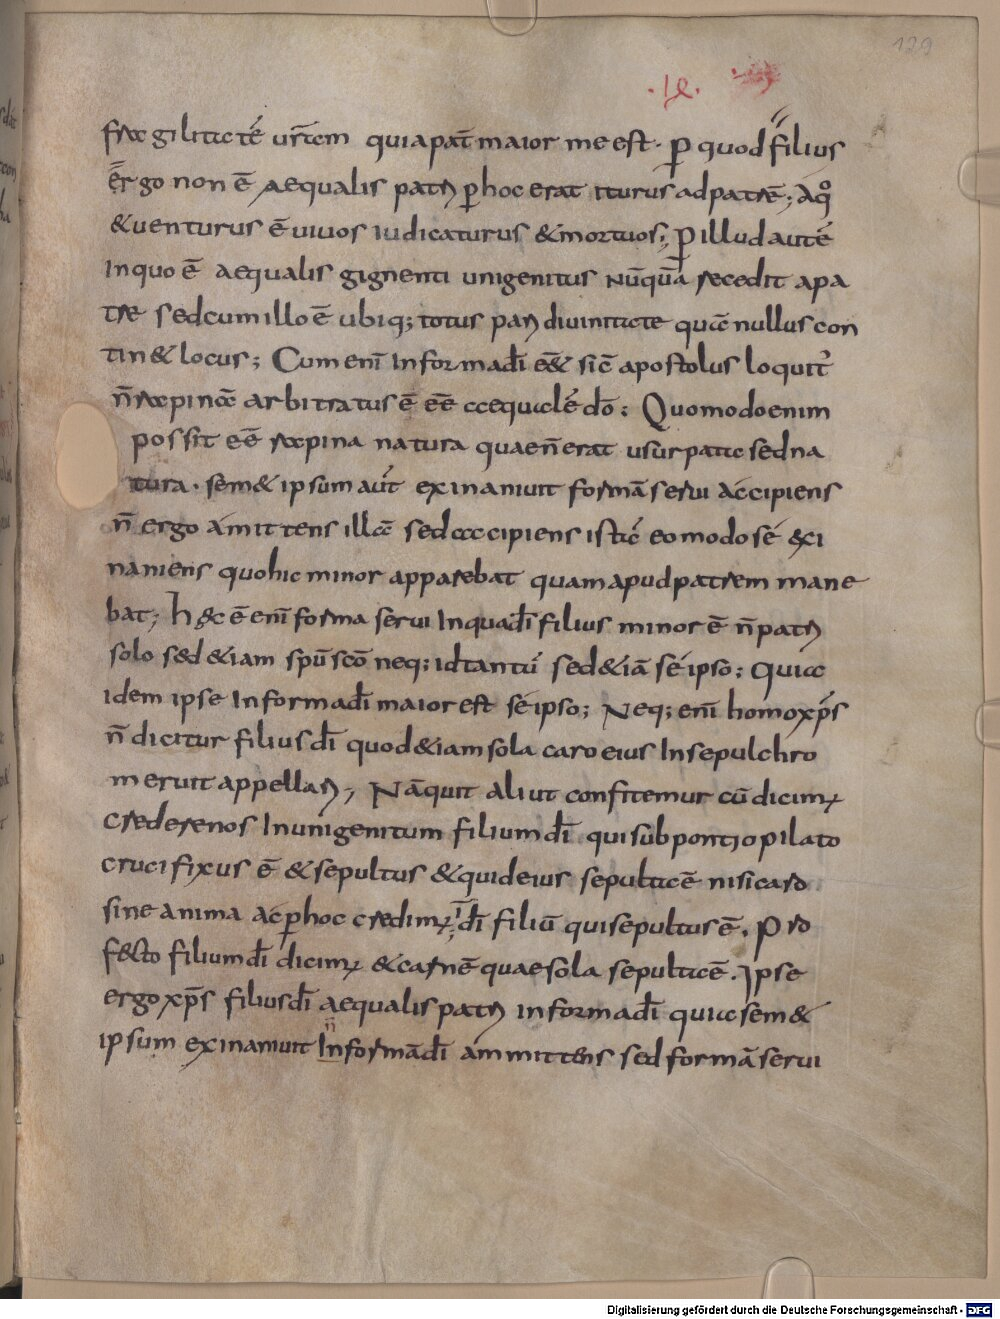 129
·lx·
fragilitatē vr̄am quia pat̄ maior me est · p̱ quod filius
ergo non ē aequalis patri p̱ hoc erat iturus ad patrē; A quo
& uenturus ē uiuos iudicaturus & mortuos; P̱ illud autē
In quo ē aequalis gignenti unigenitus nūquā recedit a pa
tre sed cum illo ē ubiq; totus pari diuinitate quā nullus con
tin& locus; Cum enī In forma dī ēē& sic̄ apostolus loquit̄
n̄ rapinā arbitratus ē eē aequalē dō; Quomodo enim
possit eē rapina natura quae n̄ erat usurpata sed na
tura · sem& ipsum aūt exinaniuit formā serui accipiens
n̄ ergo amittens illā sed accipiens istā eo modo se exi
naniens quo hic minor apparebat quam apud patrem mane
bat; hęc ē enī forma serui In qua dī filius minor ē n̄ patri
solo s&d &iam sp̄u sc̄o neq; id tantū sed &iā se ipso; Quia
idem ipse In forma dī maior est se ipso; Neq; enī homo xp̄s
n̄ dicitur filius dī quod &iam sola caro eius In sepulchro
meruit appellari; Nā quit aliut confitemur cū dicim;
credere nos In unigenitum filium dī qui sub pontio pilato
crucifixus ē & sepultus & quid eius sepultū ē nisi caro
sine anima ac p̱ hoc credim; I dī filiū qui sepultus ē. Pro
f&to filium dī dicim; & carnē quae sola sepulta ē. Ipse
ergo xp̄s filius dī aequalis patri in forma dī quia sem&
ipsum exinaniuit n̄ In formā dī ammittens sed formā serui
Digitalisierung gefördert durch die Deutsche Forschungsgemeinschaft - DFG